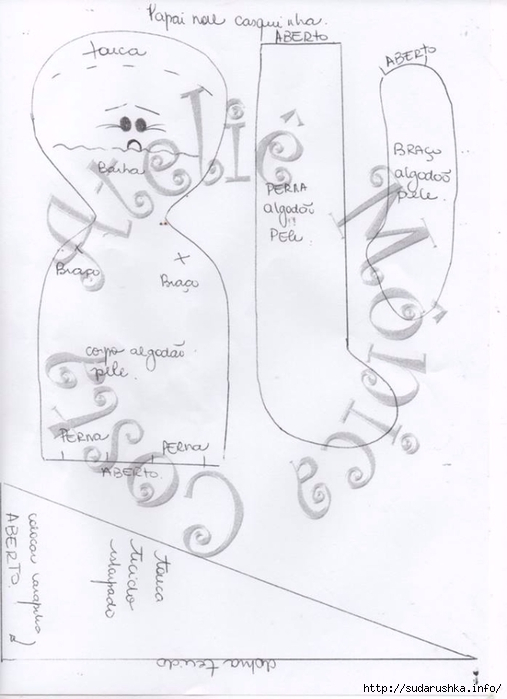 Papai noel casquinha.
ABERTO
touca
ABERTO
BRAÇO
algodão
pele.
Barba
PERNA
algodão
PELE
X
X
Braço
Braço
corpo algodão
pele.
PERNA
PERNA
ABERTO
Ateliê Mônica Costa
touca
tecido
estampado
colocar
ABERTO.
dobra tecido
http://sudarushka.info/